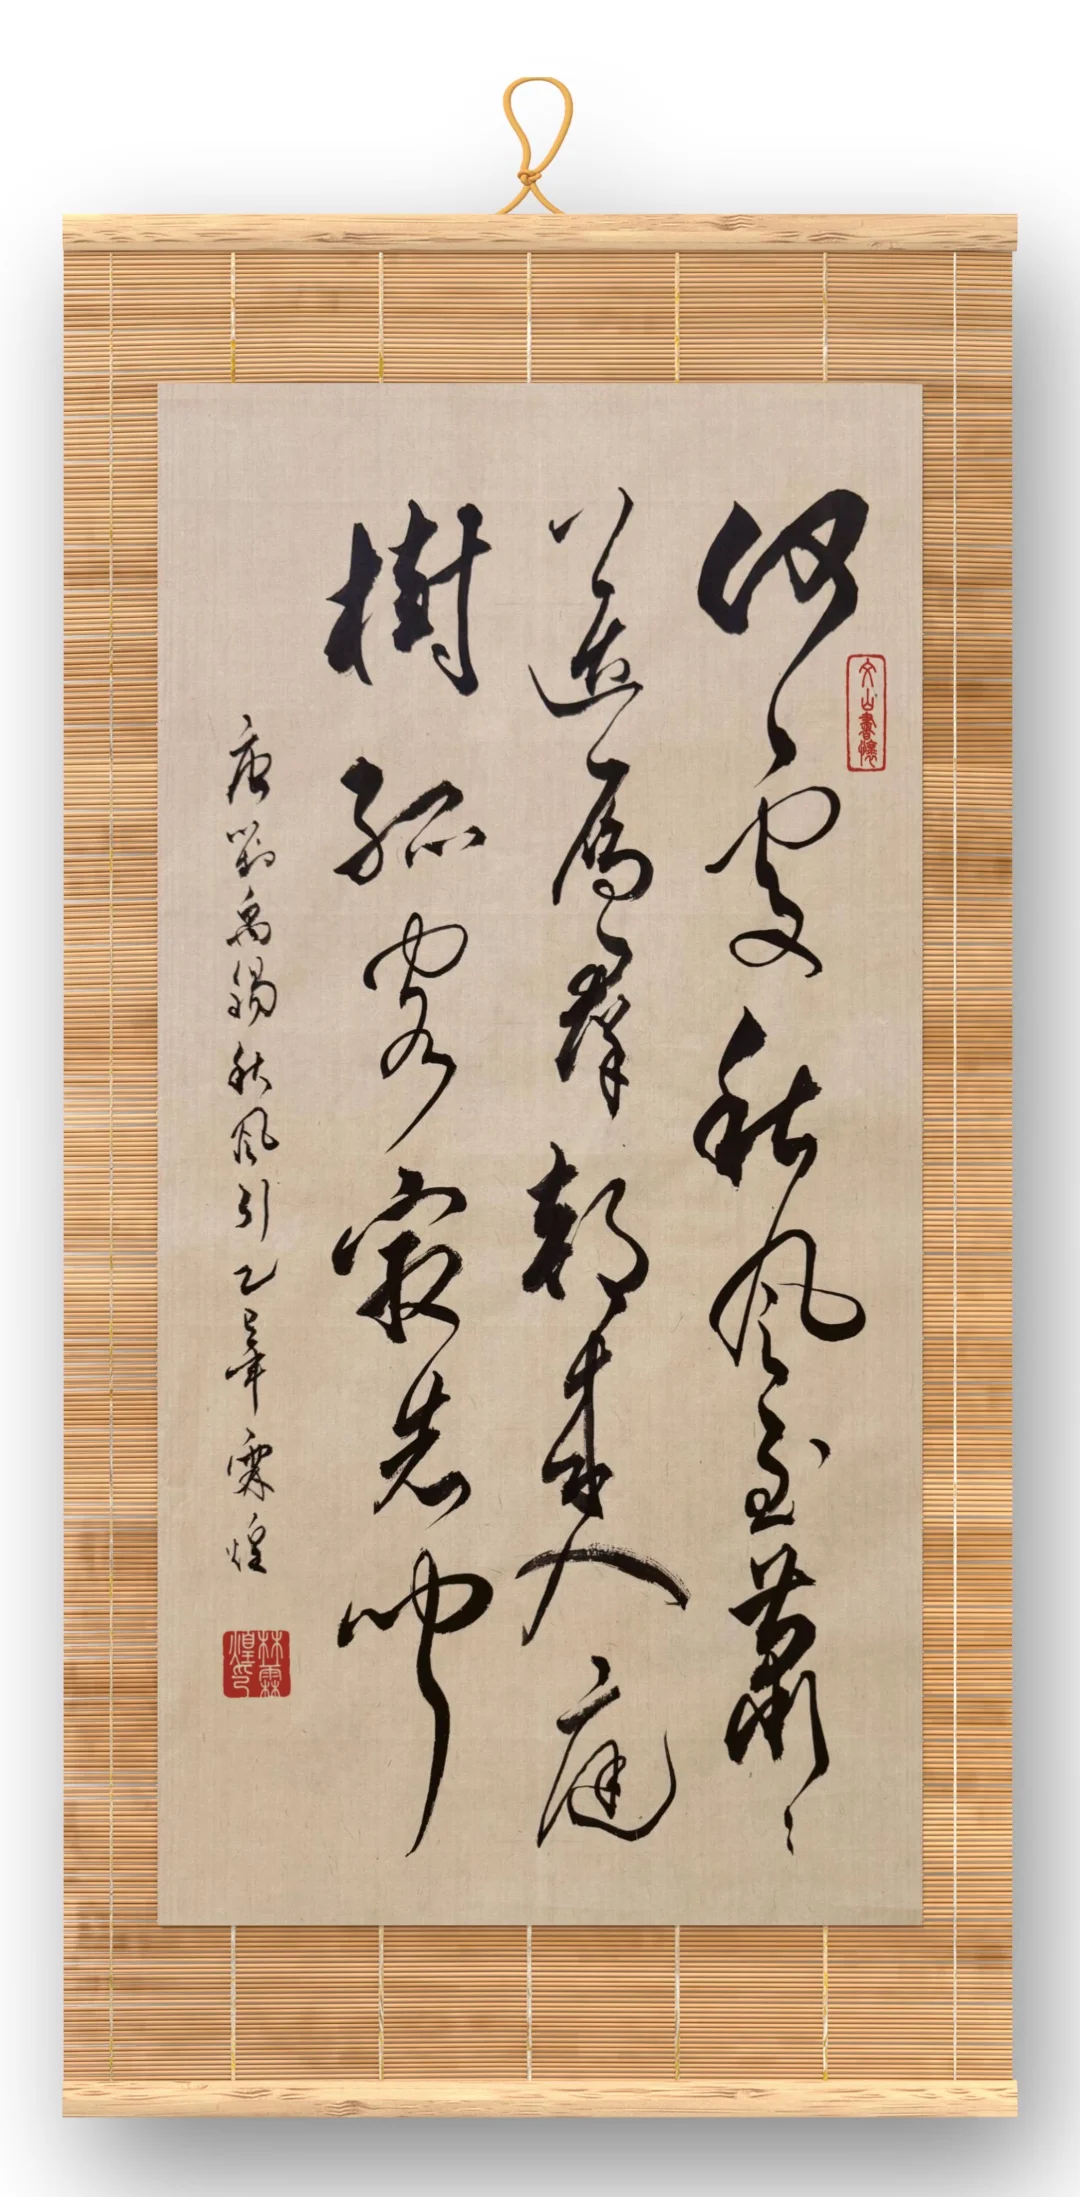 何處秋風至蕭〻
送雁羣朝來入庭
樹孤客最先聞
唐劉禹錫秋風引乙巳年霖煌
文山書懷
林霖煌印